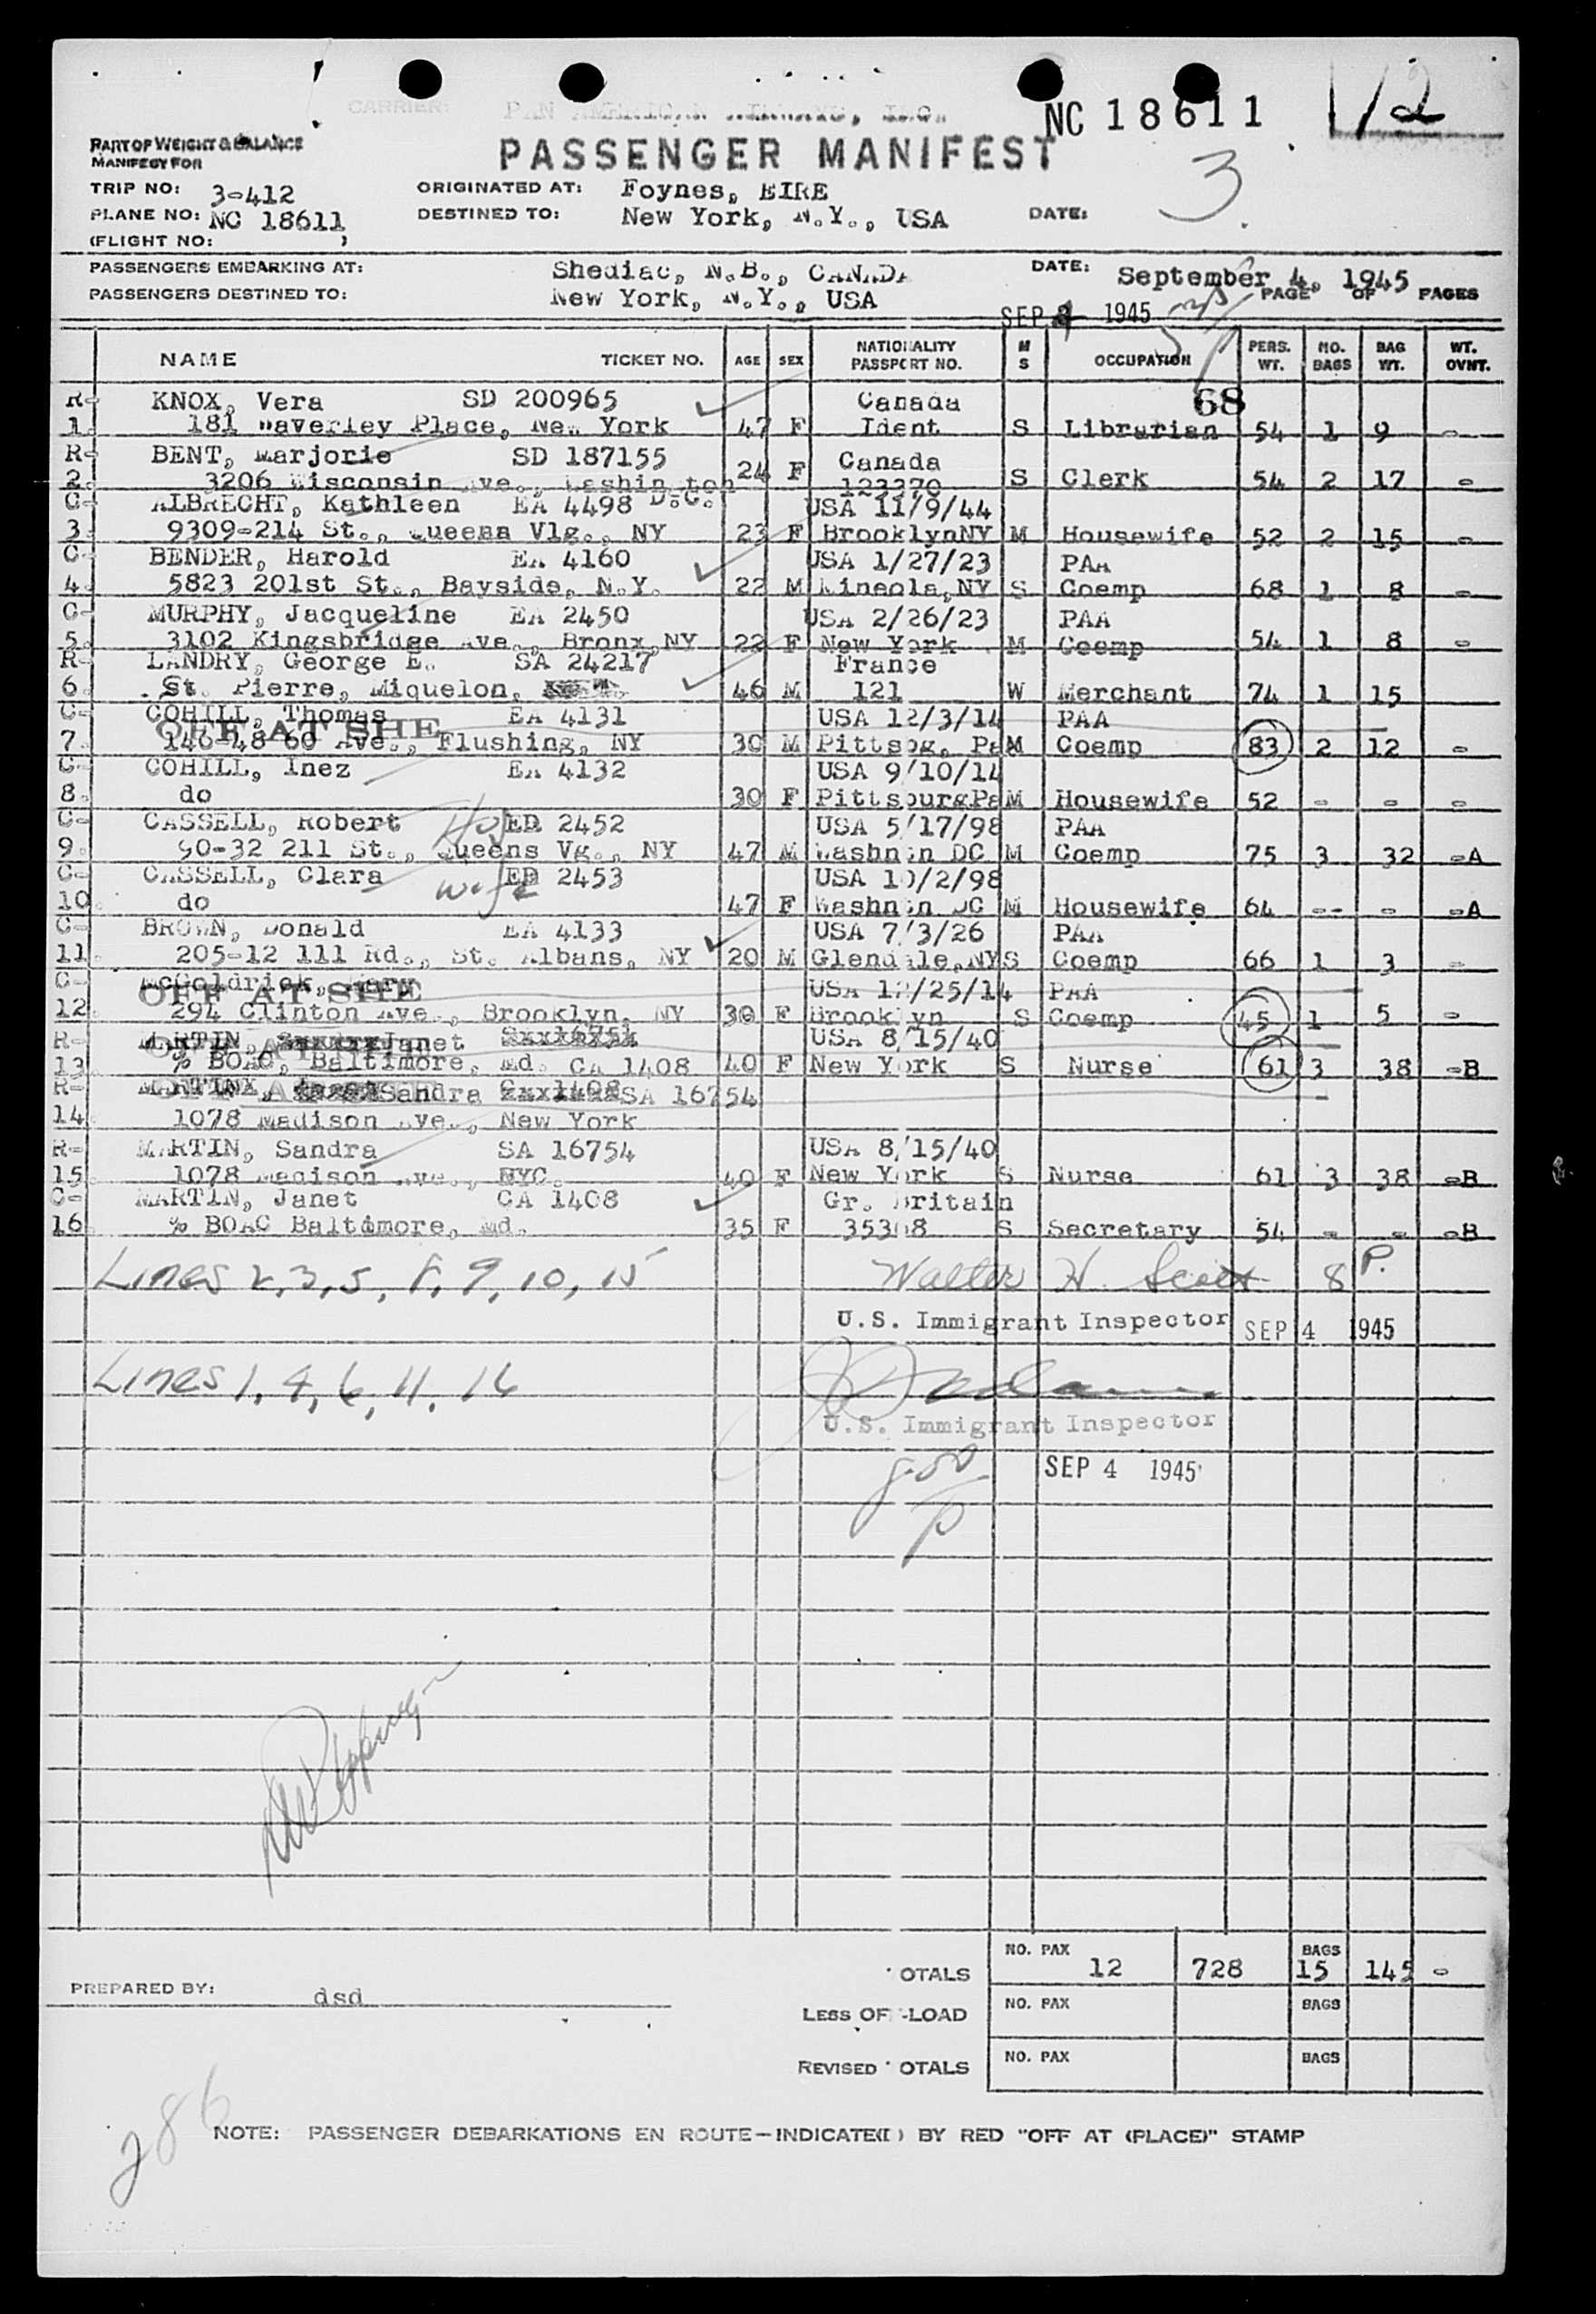 CARRIER: PAN AMERICAN AIRWAYS, INC.
NC 18611
12
PART OF WEIGHT & BALANCE
MANIFEST FOR
PASSENGER MANIFEST
3.
TRIP NO: 3-412 ORIGINATED AT: Foynes, EIRE
PLANE NO: NC 18611 DESTINED TO: New York, N.Y., USA DATE:
(FLIGHT NO: )
PASSENGERS EMBARKING AT: Shediac, N.B., CANADA DATE: September 4, 1945
PASSENGERS DESTINED TO: New York, N.Y., USA PAGE OF PAGES
SEP 4 1945
NAME TICKET NO. AGE SEX NATIONALITY PASSPORT NO. M S OCCUPATION PERS. WT. NO. BAGS BAG WT. WT. OVNT.
68
R- KNOX, Vera SD 200965 Canada
1. 181 Waverley Place, New York 47 F Ident S Librarian 54 1 9 -
R- BENT, Marjorie SD 187155 Canada
2. 3206 Wisconsin Ave., Washington D.C. 24 F 123370 S Clerk 54 2 17 -
C- ALBRECHT, Kathleen EA 4498 USA 11/9/44
3. 9309-214 St., Queens Vlg., NY 23 F BrooklynNY M Housewife 52 2 15 -
C- BENDER, Harold EA 4160 USA 1/27/23 PAA
4. 5823 201st St., Bayside, N.Y. 22 M Mineola,NY S Coemp 68 1 8 -
C- MURPHY, Jacqueline EA 2450 USA 2/26/23 PAA
5. 3102 Kingsbridge Ave., Bronx,NY 22 F New York M Coemp 54 1 8 -
R- LANDRY, George E. SA 24217 France
6. St. Pierre, Miquelon, 46 M 121 W Merchant 74 1 15
C- COHILL, Thomas EA 4131 USA 12/3/14 PAA
OFF AT SHE
7. 146-48 60 Ave., Flushing, NY 30 M Pittsbg, Pa M Coemp 83 2 12 -
C- COHILL, Inez EA 4132 USA 9/10/14
8. do 30 F PittsburgPa M Housewife 52 - - -
C- CASSELL, Robert ED 2452 USA 5/17/98 PAA
9. 90-32 211 St., Queens Vg., NY 47 M Washn:n DC M Coemp 75 3 32 -A
C- CASSELL, Clara wife ED 2453 USA 10/2/98
10. do 47 F Washn:n DC M Housewife 64 -- - -A
C- BROWN, Donald EA 4133 USA 7/3/26 PAA
11. 205-12 111 Rd., St. Albans, NY 20 M Glendale,NY S Coemp 66 1 3 -
C- McGoldrick, Mary USA 12/25/14 PAA
OFF AT SHE
12. 294 Clinton Ave., Brooklyn, NY 30 F Brooklyn S Coemp 45 1 5 -
R- MARTIN, Janet USA 8/15/40
13. % BOAC, Baltimore, Md. CA 1408 40 F New York S Nurse 61 3 38 -B
R- MARTIN, Sandra SA 16754
14. 1078 Madison Ave., New York
R- MARTIN, Sandra SA 16754 USA 8/15/40
15. 1078 Madison Ave., NYC. 40 F New York S Nurse 61 3 38 -B
C- MARTIN, Janet CA 1408 Gr. Britain
16. % BOAC Baltimore, Md. 35 F 35308 S Secretary 54 - - -B
Lines 2, 3, 5, 8, 9, 10, 15 Walter H. Scott 8 P.
U.S. Immigrant Inspector SEP 4 1945
Lines 1, 4, 6, 11, 16
U.S. Immigrant Inspector
SEP 4 1945
TOTALS NO. PAX 12 728 BAGS 15 145 -
PREPARED BY: dsd
LESS OFF-LOAD NO. PAX BAGS
REVISED TOTALS NO. PAX BAGS
286
NOTE: PASSENGER DEBARKATIONS EN ROUTE-INDICATE(D) BY RED "OFF AT (PLACE)" STAMP